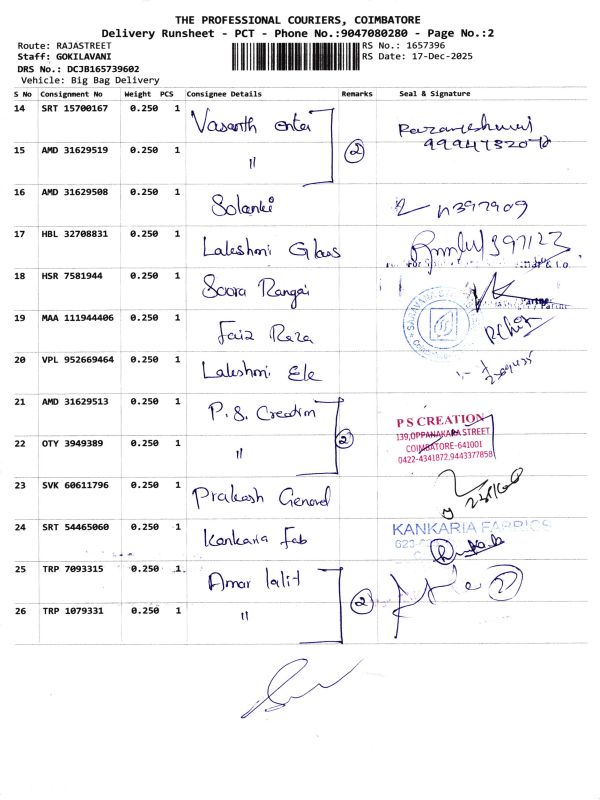 THE PROFESSIONAL COURIERS, COIMBATORE
Delivery Runsheet - PCT - Phone No.:9047080280 - Page No.:2
Route: RAJASTREET
Staff: GOKILAVANI
DRS No.: DCJB165739602
Vehicle: Big Bag Delivery
RS No.: 1657396
RS Date: 17-Dec-2025
S No Consignment No Weight PCS Consignee Details Remarks Seal & Signature
14 SRT 15700167 0.250 1 Vasanth
15 AMD 31629519 0.250 1 " 2
16 AMD 31629508 0.250 1 Solanki
17 HBL 32708831 0.250 1 Lakshmi Glass
18 HSR 7581944 0.250 1 Soora Rangai
19 MAA 111944406 0.250 1 Faiz Raza
20 VPL 952669464 0.250 1 Lakshmi Ele
21 AMD 31629513 0.250 1 P.S. Creation
22 OTY 3949389 0.250 1 " 2
P S CREATION
139,OPPANAKARA STREET
COIMBATORE-641001
0422-4341872,9443377858
23 SVK 60611796 0.250 1 Prakash General
24 SRT 54465060 0.250 1 Kankaria Fab
KANKARIA FABRICS
25 TRP 7093315 0.250 1 Amar lalit
26 TRP 1079331 0.250 1 " 2